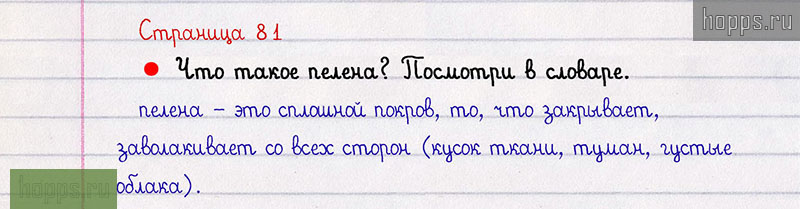 hopps.ru
Страница 81
Что такое пелена? Посмотри в словаре.
пелена – это сплошной покров, то, что закрывает,
заволакивает со всех сторон (кусок ткани, туман, густые
облака).
hopps.ru